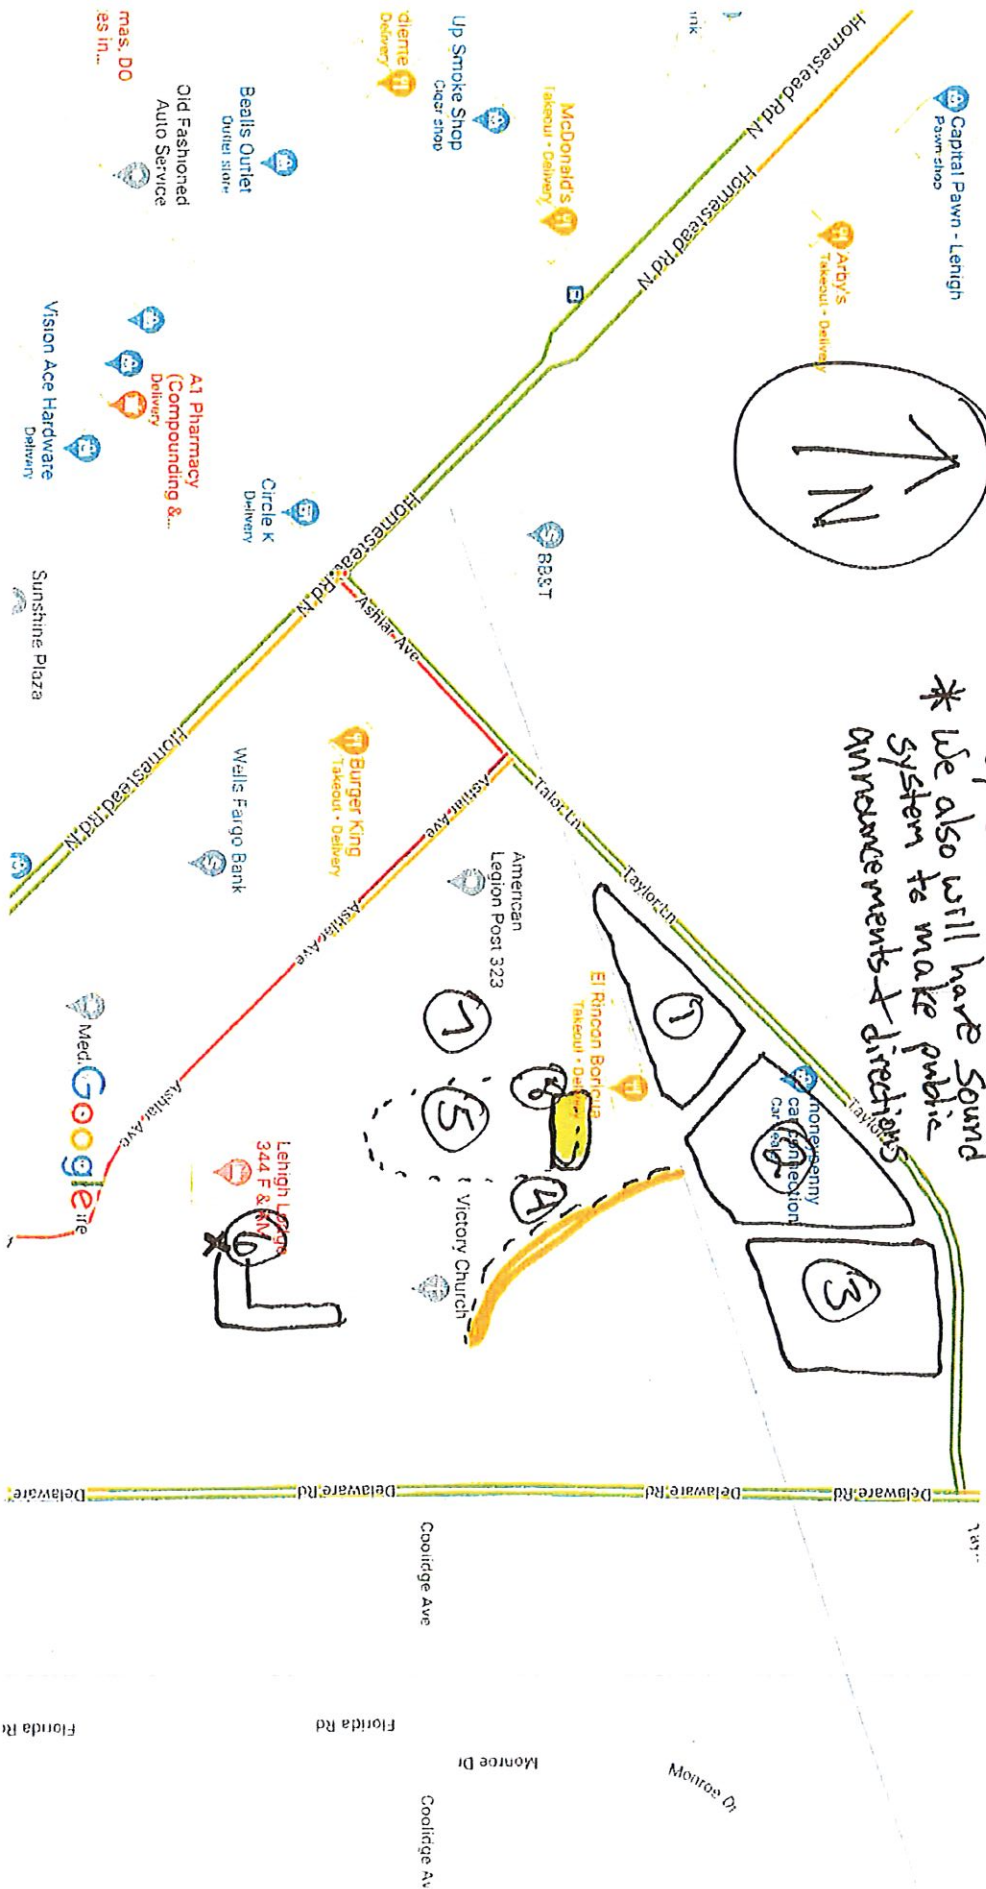 * We also will have sound
system to make public
announcements & directions
N
Capital Pawn - Lehigh
Pawn shop
Arby's
Takeout • Delivery
Homestead Rd N
Homestead Rd N
McDonald's
Takeout • Delivery
Up Smoke Shop
Cigar shop
diente
Delivery
Bealls Outlet
Outlet store
Old Fashioned
Auto Service
mas, DO
es in...
A1 Pharmacy
(Compounding &...
Delivery
Vision Ace Hardware
Delivery
Circle K
Delivery
BB&T
Homestead Rd N
Homestead Rd N
Ashlar Ave
Sunshine Plaza
Homestead Rd N
Wells Fargo Bank
Burger King
Takeout • Delivery
Ashlar Ave
Ashlar Ave
Ashlar Ave
Talor Ln
Taylor Ln
Taylor
American
Legion Post 323
El Rincon Boricua
Takeout • Delivery
moneysenny
car connection
1
2
3
4
5
6
7
8
Victory Church
Lehigh Lodge
344 F & AM
Med.
Google
Delaware
Delaware Rd
Delaware Rd
Delaware Rd
Delaware Rd
Delaware Rd
Coolidge Ave
Florida Rd
Florida Rd
Monroe Dr
Monroe Dr
Coolidge Av